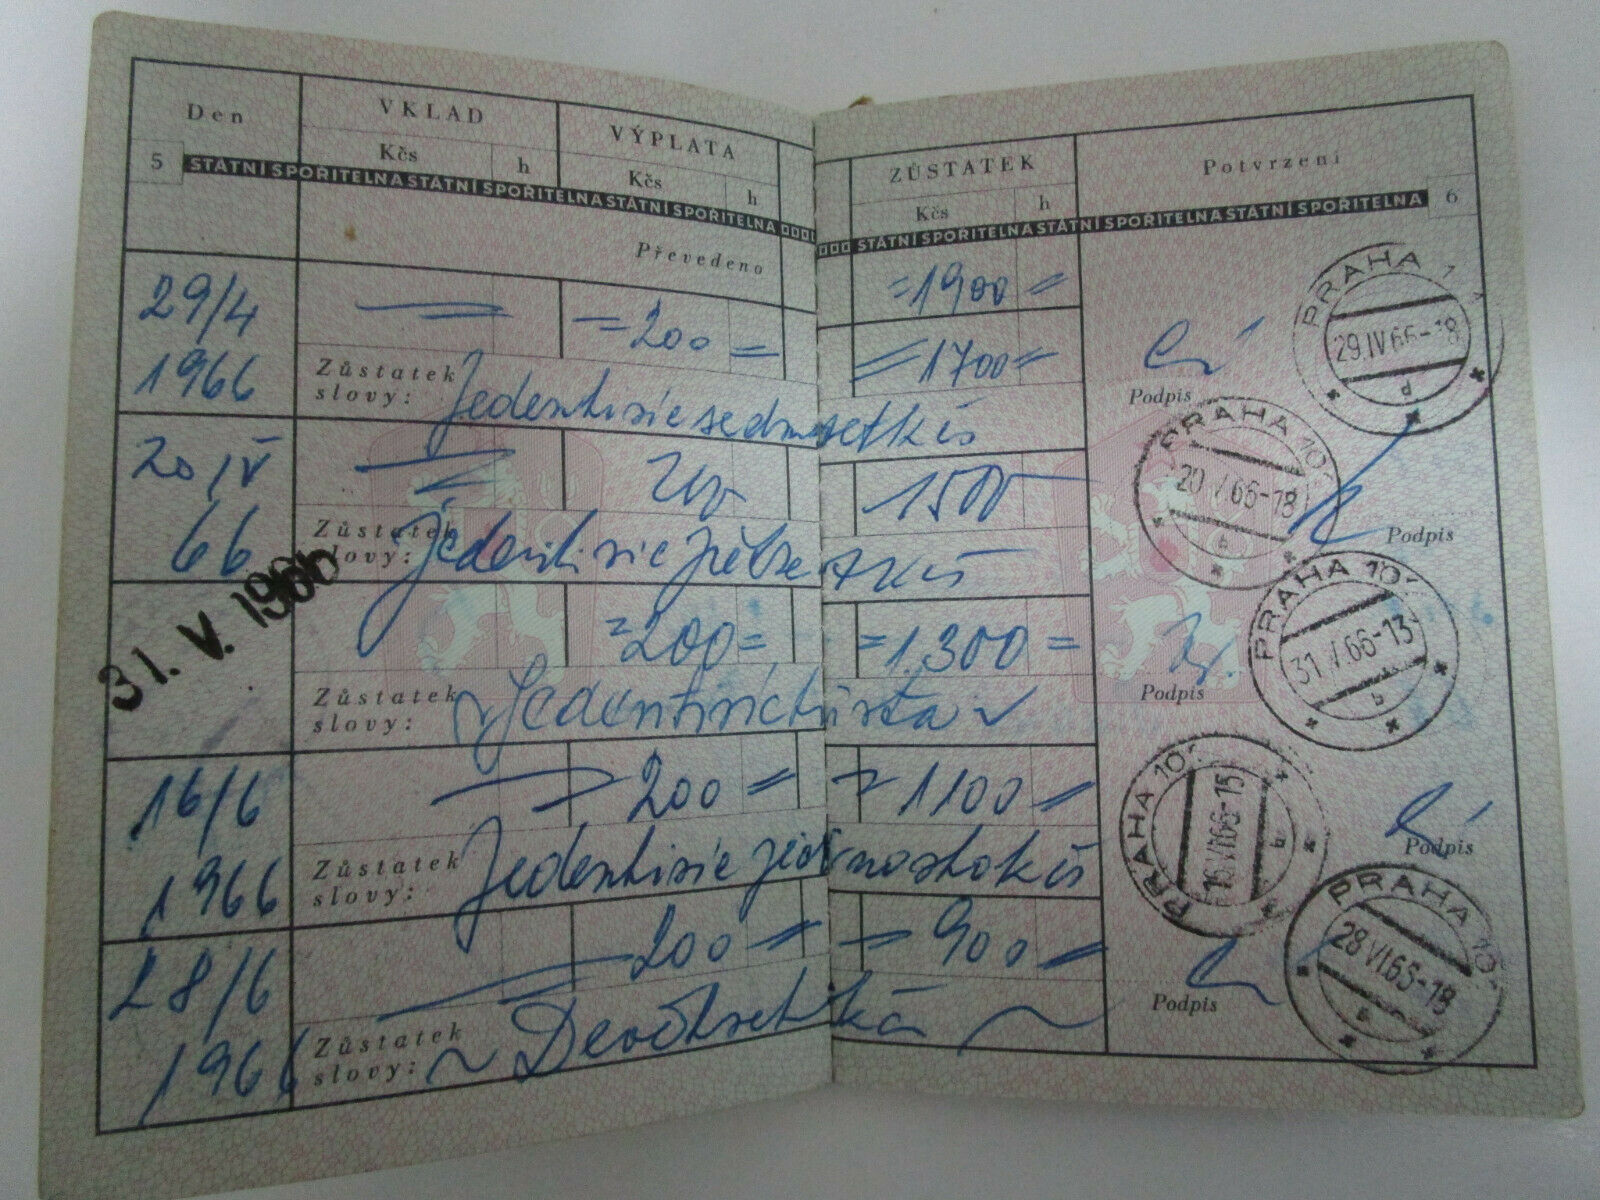 Den VKLAD VÝPLATA ZŮSTATEK Potvrzení
Kčs h Kčs h Kčs h
5 STÁTNÍ SPOŘITELNA STÁTNÍ SPOŘITELNA STÁTNÍ SPOŘITELNA STÁTNÍ SPOŘITELNA STÁTNÍ SPOŘITELNA 6
Převedeno =1900=
29/4 — =200= =1700= Podpis
1966 Zůstatek slovy: Jedentisícsedmsetkčs
PRAHA 29.IV.66-18
20/V — 200 1500 Podpis
66 Zůstatek slovy: jedentisícpětsetkčs
PRAHA 10 20.V.66-18 b
31. V. 1966 =200= =1.300= Podpis
Zůstatek slovy: ~Jedentisíctřista~
PRAHA 10 31.V.66-13 b
16/6 — 200= =1100= Podpis
1966 Zůstatek slovy: Jedentisícjednostokčs
PRAHA 10 16.VI.66-15 b
28/6 — 200= =900= Podpis
1966 Zůstatek slovy: ~Devětset kčs~
PRAHA 10 28.VI.66-18